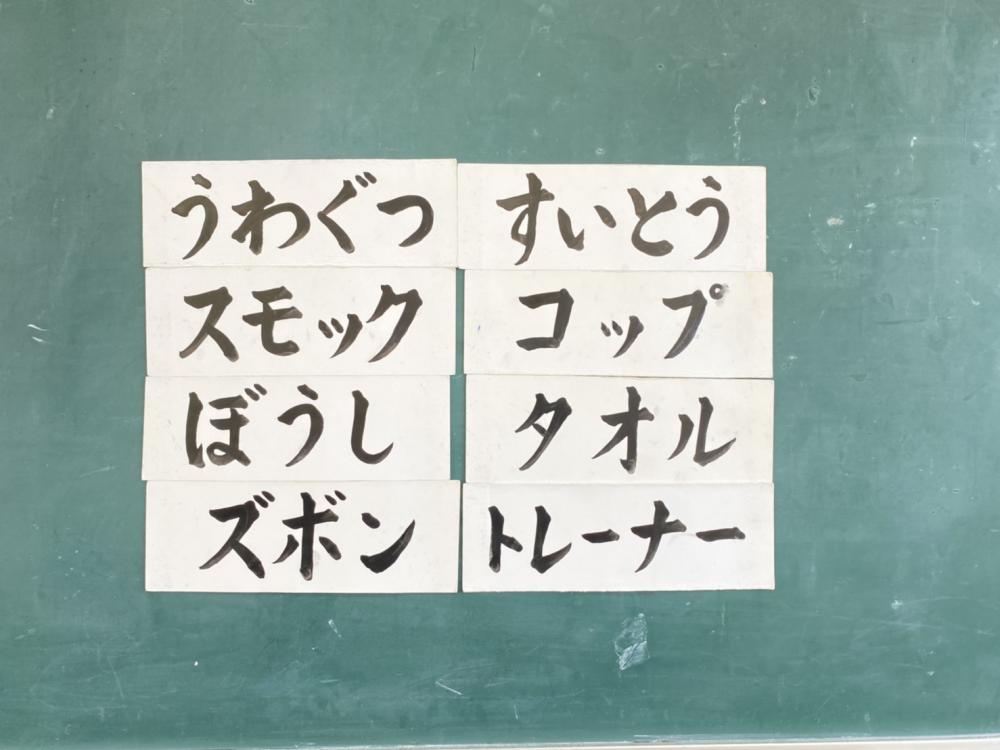 うわぐつ
すいとう
スモック
コップ
ぼうし
タオル
ズボン
トレーナー